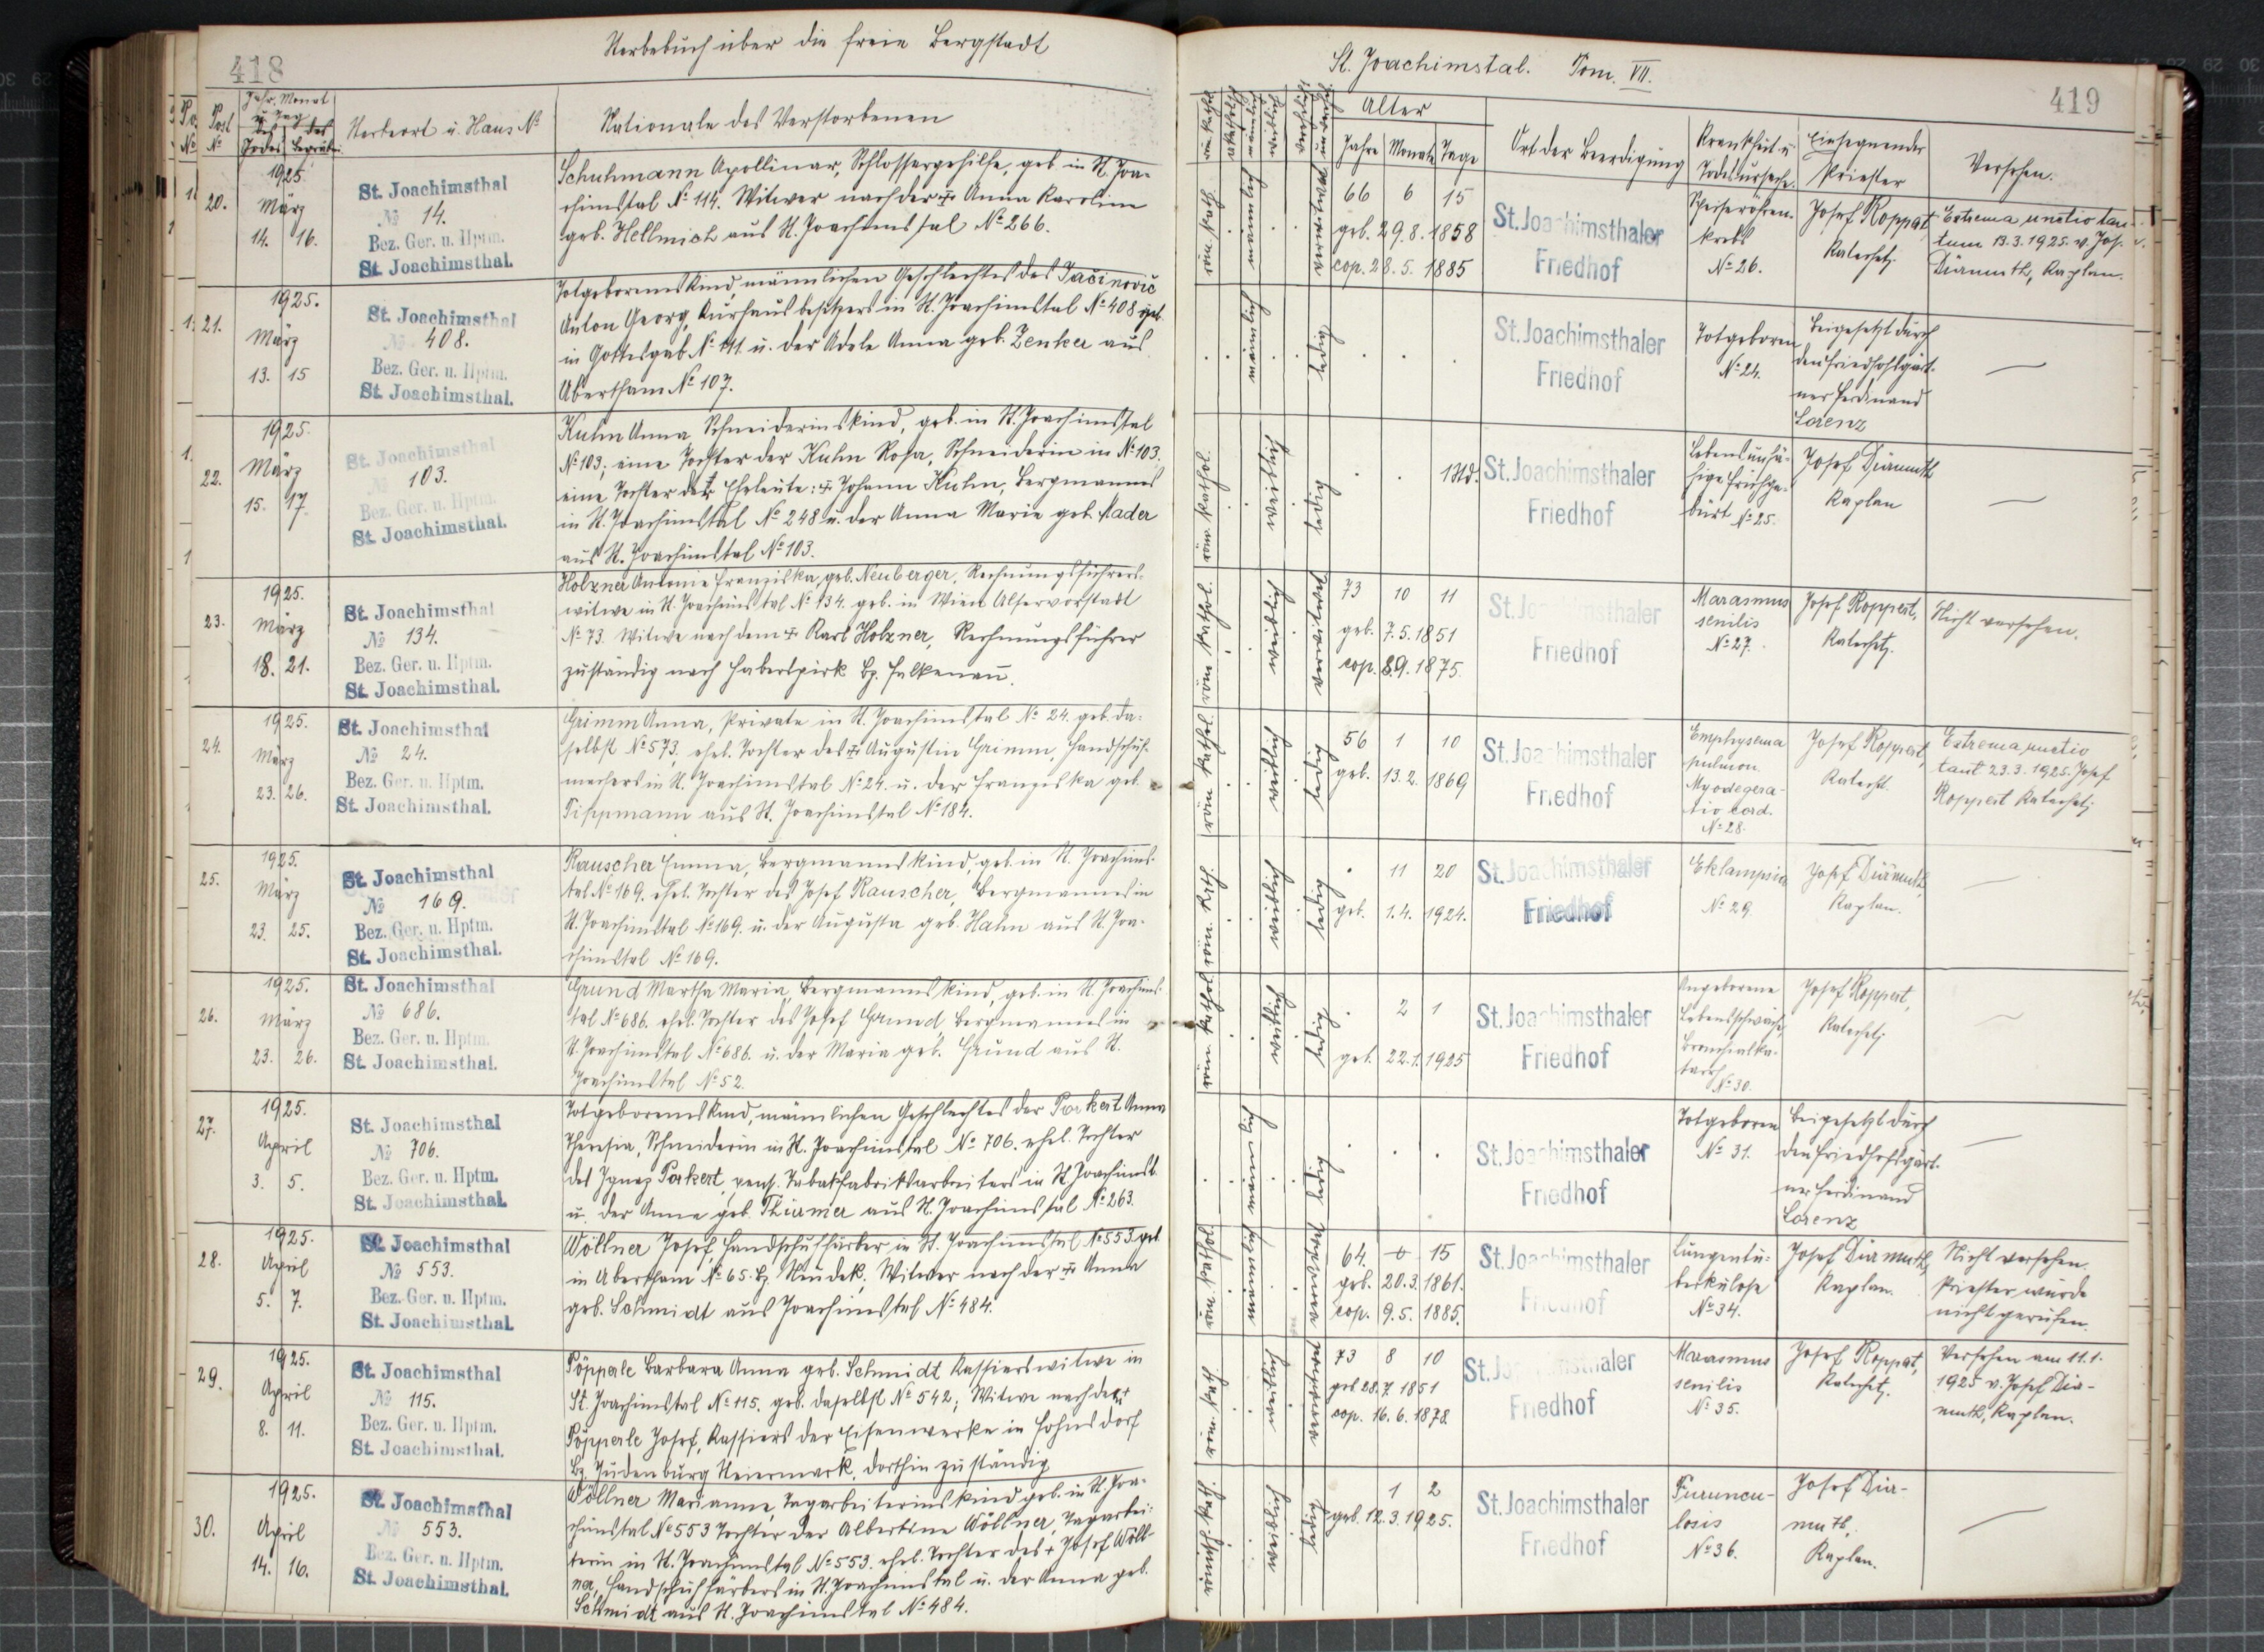 418
Sterbebuch über die freie Bergstadt
Post
No
Jahr, Monat
u Tag
des
Todes
des
Begräbn.
Sterbeort u. Haus No
Nationale des Verstorbenen
20.
1925
März
14. 16.
St. Joachimsthal
No 14.
Bez. Ger. u. Hptm.
St. Joachimsthal.
Schuhmann Apollinar, Schlossergehilfe, geb in St. Joa-
chimstal No 114. Witwer nach der Anna Karoline
geb. Hellmich aus St. Joachimstal No 266.
21.
1925.
März
13. 15
St. Joachimsthal
No 408.
Bez. Ger. u. Hptm.
St. Joachimsthal.
Totgeborenes Kind, männlichen Geschlechtes des Pačinovič
Anton Georg, Kurhausbesitzers in St. Joachimstal No 408 geb.
in Gottesgab No 111. u. der Adele Anna geb. Zenker aus
Abertham No 107.
22.
1925.
März
15. 17.
St. Joachimsthal
No 103.
Bez. Ger. u. Hptm.
St. Joachimsthal.
Kuhn Anna, Schneiderinskind, geb. in St. Joachimstal
No 103; eine Tochter der Kuhn Rosa, Schneiderin in No 103.
eine Tochter der Eheleute: Johann Kuhn, Bergmannes
in St. Joachimstal No 248 u. der Anna Marie geb. Mader
aus St. Joachimstal No 103.
23.
1925.
März
18. 21.
St. Joachimsthal
No 134.
Bez. Ger. u. Hptm.
St. Joachimsthal.
Holzner Antonie Franziska, geb. Neuberger, Rechnungsführers-
witwe in St. Joachimstal No 134. geb. in Wien Alservorstadt
No 73. Witwe nach dem Karl Holzner, Rechnungsführer
zuständig nach Haberspirk Bz. Falkenau.
24.
1925.
März
23. 26.
St. Joachimsthal
No 24.
Bez. Ger. u. Hptm.
St. Joachimsthal.
Grimm Anna, Private in St. Joachimstal No 24. geb. da-
selbst No 573, ehel. Tochter des Augustin Grimm, Handschuh-
machers in St. Joachimstal No 24. u. der Franziska geb.
Tippmann aus St. Joachimstal No 184.
25.
1925.
März
23. 25.
St. Joachimsthal
No 169.
Bez. Ger. u. Hptm.
St. Joachimsthal.
Rauscher Emma, Bergmannskind, geb. in St. Joachims-
tal No 169. ehel. Tochter des Josef Rauscher, Bergmannes in
St. Joachimstal No 169. u. der Augusta geb. Hahn aus St. Joa-
chimstal No 169.
26.
1925.
März
23. 26.
St. Joachimsthal
No 686.
Bez. Ger. u. Hptm.
St. Joachimsthal.
Grund Martha Maria, Bergmannskind, geb. in St. Joachims-
tal No 686. ehel. Tochter des Josef Grund, Bergmannes in
St. Joachimstal No 686. u. der Maria geb. Grund aus St.
Joachimstal No 52.
27.
1925.
April
3. 5.
St. Joachimsthal
No 706.
Bez. Ger. u. Hptm.
St. Joachimsthal.
Totgeborenes Kind, männlichen Geschlechtes der Porkert Anna
Theresia, Schneiderin in St. Joachimstal No 706. ehel. Tochter
des Ignaz Porkert, pens. Tabakfabriksarbeiters in St. Joachimst.
u. der Anna geb. Thürmer aus St. Joachimstal No 263.
28.
1925.
April
5. 7.
St. Joachimsthal
No 553.
Bez. Ger. u. Hptm.
St. Joachimsthal.
Wöllner Josef, Handschuhfärber in St. Joachimstal No 553. geb
in Abertham No 65. Bz. Neudek. Witwer nach der Anna
geb. Schmidt aus Joachimstal No 484.
29.
1925.
April
8. 11.
St. Joachimsthal
No 115.
Bez. Ger. u. Hptm.
St. Joachimsthal.
Pöpperle Barbara Anna geb. Schmidt Kassierswitwe in
St. Joachimstal No 115. geb. daselbst No 542; Witwe nach dem
Pöpperle Josef, Kassiers der Eisenwerke in Fohnsdorf
Bz. Judenburg Steiermark, dorthin zuständig
30.
1925.
April
14. 16.
St. Joachimsthal
No 553.
Bez. Ger. u. Hptm.
St. Joachimsthal.
Wöllner Marianne, Tagarbeiterinskind geb. in St. Joa-
chimstal No 553 Tochter der Albertine Wöllner, Tagarbei-
terin in St. Joachimstal No 553. ehel. Tochter des + Josef Wöll-
ner, Handschuhfärbers in St. Joachimstal u. der Anna geb.
Schmidt aus St. Joachimstal No 484.
St. Joachimstal. Tom. VII.
419
röm. kathol.
männlich
weiblich
Alter
Jahre Monate Tage
Ort der Beerdigung
Krankheit u
Todesursache.
Einsegnender
Priester
Versehen.
röm. kath.
männlich
verwitwet
66 6 15
geb. 29.8.1858
cop. 28.5. 1885
St. Joachimsthaler
Friedhof
Speiseröhren-
krebs
No 26.
Josef Roppert,
Katechet.
Extrema unctio tan-
tum 13.3.1925. v. Jos.
Dürmuth, Kaplan.
männlich
ledig
St. Joachimsthaler
Friedhof
Totgeboren
No 24.
Beigesetzt durch
den Friedhofsgärt-
ner Ferdinand
Lorenz
röm. kathol.
weiblich
ledig
1 Std.
St. Joachimsthaler
Friedhof
Lebensunfä-
hige Frühge-
burt No 25.
Josef Dürmuth
Kaplan
röm. kathol.
weiblich
verwitwet
73 10 11
geb. 7.5.1851
cop. 8.9.1875.
St. Joachimsthaler
Friedhof
Marasmus
senilis
No 27.
Josef Roppert,
Katechet.
Nicht versehen.
röm. kathol.
weiblich
ledig
56 1 10
geb. 13.2. 1869
St. Joachimsthaler
Friedhof
Emphysema
pulmon.
Myodegera-
tio cord.
No 28.
Josef Roppert,
Katechet.
Extrema unctio
tant 23.3.1925. Josef
Roppert Katechet.
röm. kth.
weiblich
ledig
11 20
geb. 1.4. 1924.
St. Joachimsthaler
Friedhof
Eklampsia
No 29
Josef Dürmuth,
Kaplan.
röm. kathol.
weiblich
ledig
2 1
geb. 22.1.1925
St. Joachimsthaler
Friedhof
Angeborene
Lebensschwäche,
Bronchialka-
tarrh
No 30.
Josef Roppert,
Katechet.
männlich
ledig
St. Joachimsthaler
Friedhof
Totgeboren
No 31.
Beigesetzt durch
den Friedhofsgärt-
ner Ferdinand
Lorenz
röm. kathol.
männlich
verwitwet
64. 0 15
geb. 20.3.1861.
cop. 9.5. 1885.
St. Joachimsthaler
Friedhof
Lungentu-
berkulose
No 34.
Josef Dürmuth,
Kaplan.
Nicht versehen.
Priester wurde
nicht gerufen.
röm. kath.
weiblich
verwitwet
73 8 10
geb 28.7. 1851
cop. 16.6.1878.
St. Joachimsthaler
Friedhof
Marasmus
senilis
No 35.
Josef Roppert,
Katechet.
Versehen am 11.1.
1925 v. Josef Dür-
muth, Kaplan.
römisch. kath.
weiblich
ledig
1 2
geb. 12.3.1925.
St. Joachimsthaler
Friedhof
Furuncu-
losis
No 36.
Josef Dür-
muth,
Kaplan.